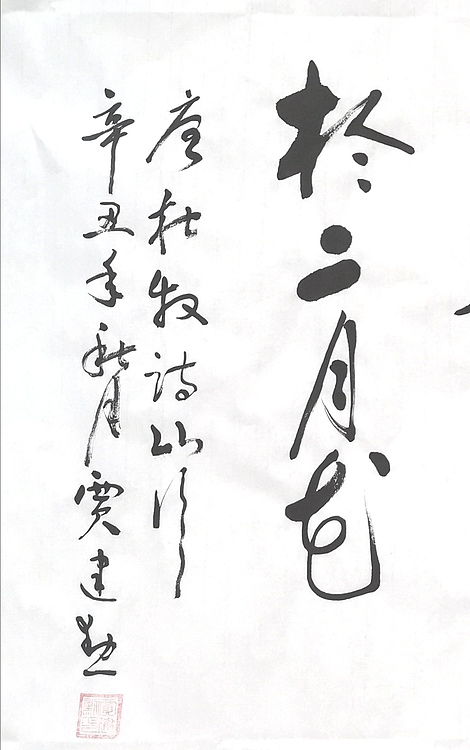 於二月花
唐杜牧诗山行
辛丑年秋月贾建勋